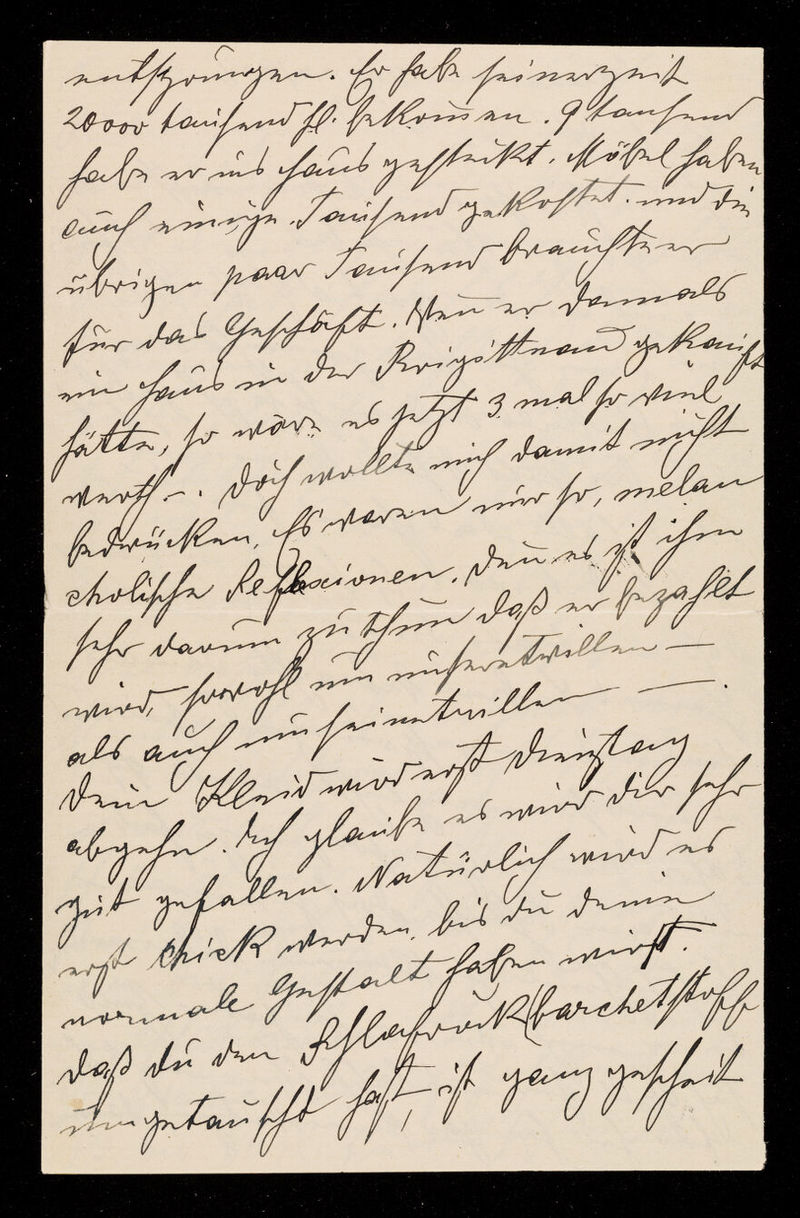 entspringen. Er habe seinerzeit
20000 tausend fl. bekom̅en. 9 tausend
habe er ins Haus gesteckt. Möbel haben
auch einige Tausend gekostet. und die
übrigen paar Tausend brauchte er
für das Geschäft. Wen̅ er damals
ein Haus in der Brigittenau gekauft
hätte, so wäre es jetzt 3 mal so viel
werth –. Doch wollte mich damit nicht
bedrücken. Es waren nur so, melan
cholische Reflexionen. Den̅ es ist ihm
sehr darum zu thun daß er bezahlt
wird, sowohl um unseretwillen —
als auch um seinetwillen — .
Dein Kleid wird erst Dienstag
abgehn. Ich glaube es wird dir sehr
gut gefallen. Natürlich wird es
erst chick werden, bis du deine
normale Gestalt haben wirst.
Daß du den Schlafrock (barchetstoff
umgetauscht hast, ist ganz gescheit